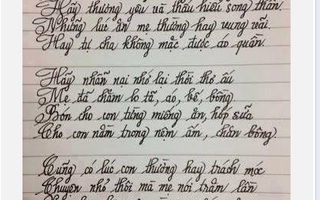 Hãy thương yêu và thấu hiểu song thân
Những lúc ăn mẹ thường hay vung vãi
Hay tự cha không mặc được áo quần

Hãy nhẫn nại nhớ lại thời thơ ấu
Mẹ đã chăm lo tã, áo, bế bồng
Bón cho con từng miếng ăn, hớp sữa
Cho con nằm trong nệm ấm, chăn bông

Cũng có lúc con thường hay trách móc
Chuyện nhỏ thôi mà mẹ nói trăm lần